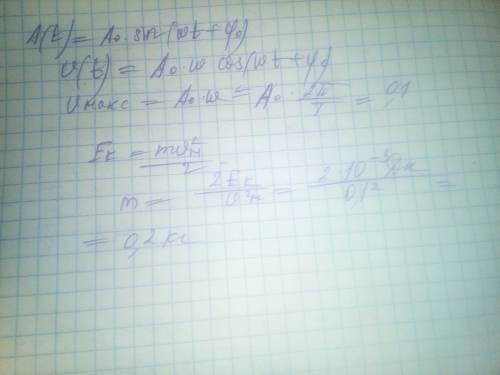 A(t) = A₀ · sin(ωt + φ₀)
υ(t) = A₀ · ω cos(ωt + φ₀)
υмакс = A₀ · ω = A₀ · 2π/T = 0,1
Eк = mυ²м/2
m = 2Eк/υ²м = 2 · 10⁻³ Дж/0,1² =
= 0,2 кг